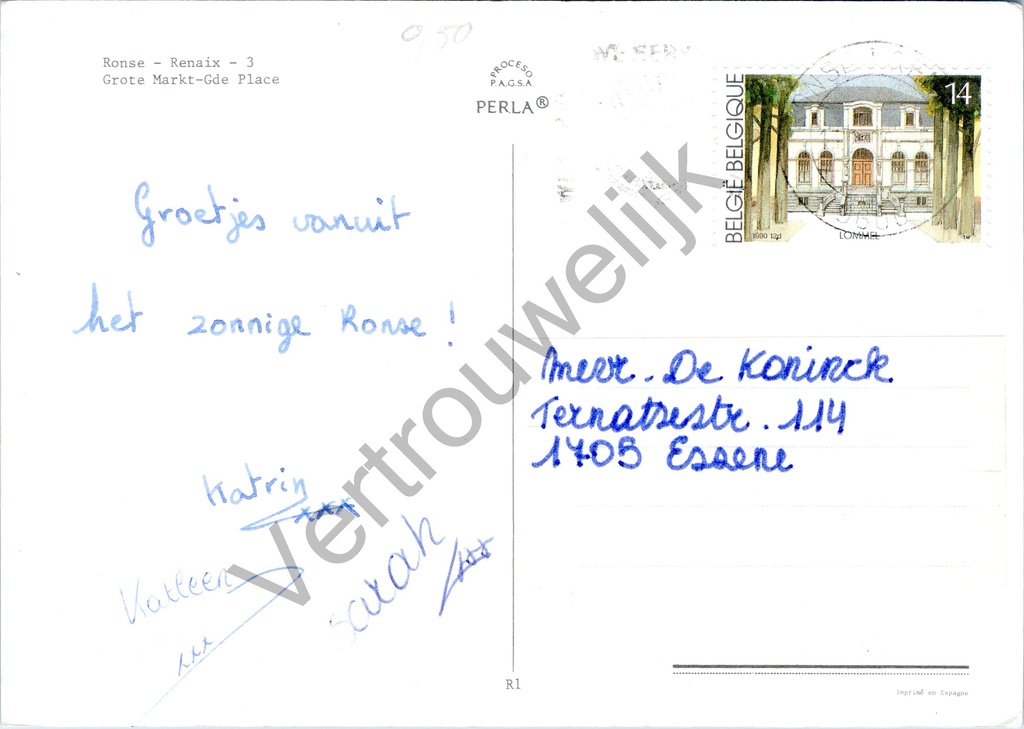 0,50
Ronse - Renaix - 3
Grote Markt-Gde Place
PROCESO
P.A.G.S.A.
PERLA®
BELGIË BELGIQUE
14
1990 12d
LOMMEL
Groetjes vanuit
het zonnige Ronse !
Katrin
xxx
Katleen
xxx
Sarah
xxx
Mevr. De Koninck
Ternatsestr. 114
1705 Essene
Vertrouwelijk
R1
imprimé en Espagne